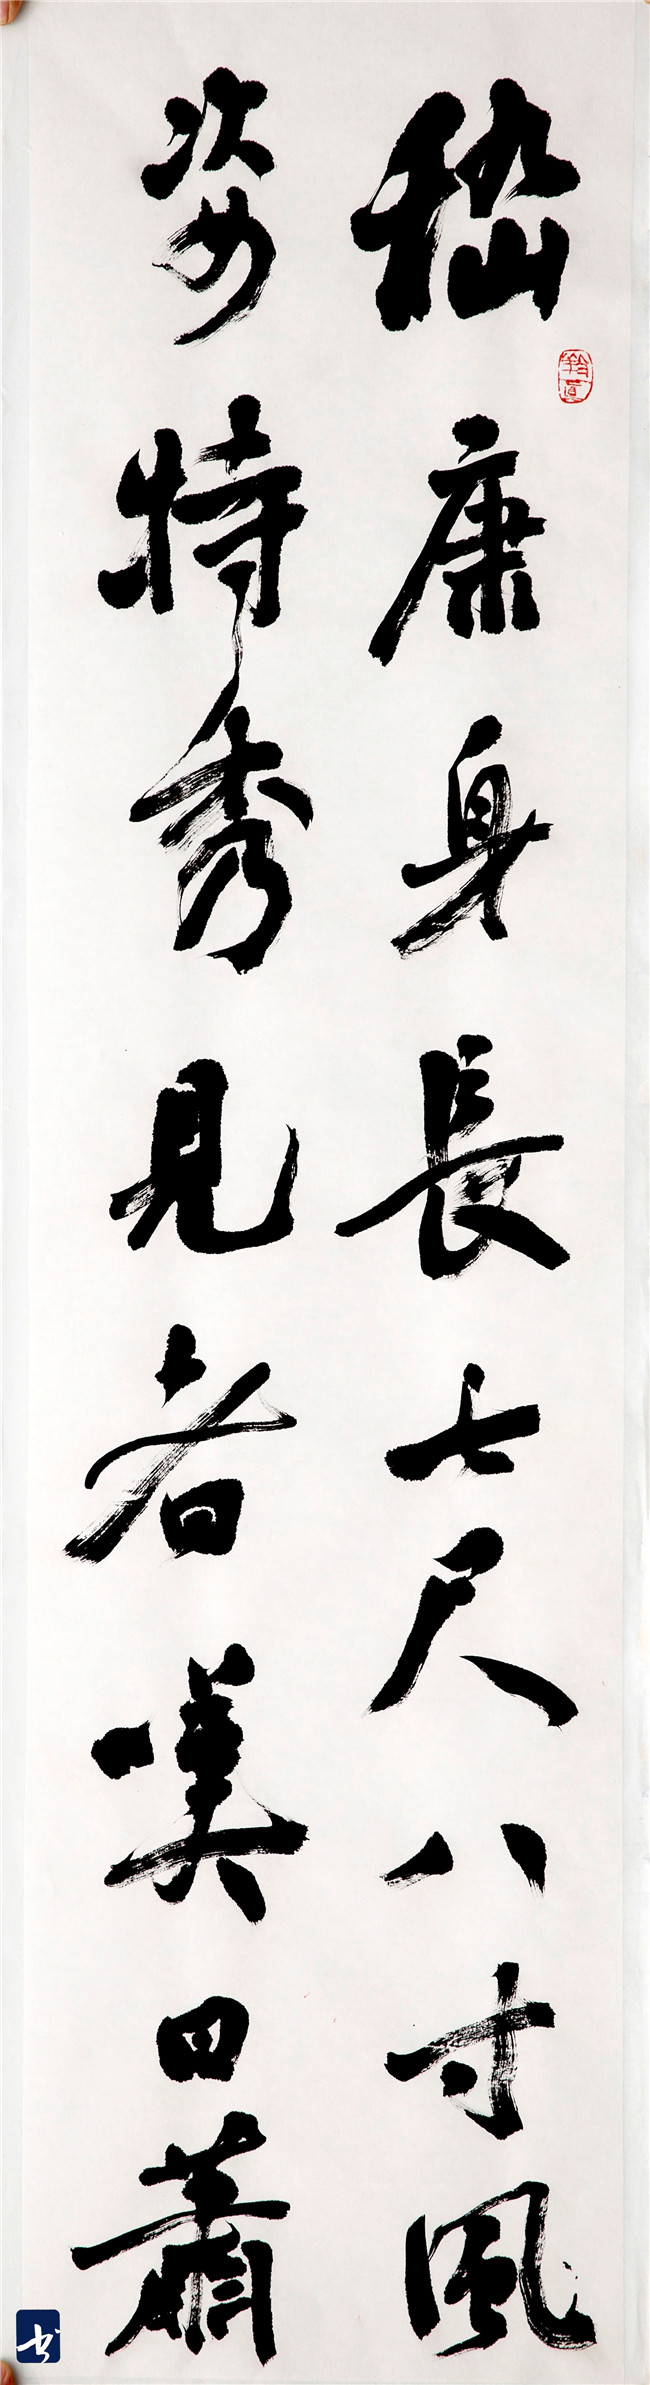 嵇康身長七尺八寸風
姿特秀見者嘆曰蕭